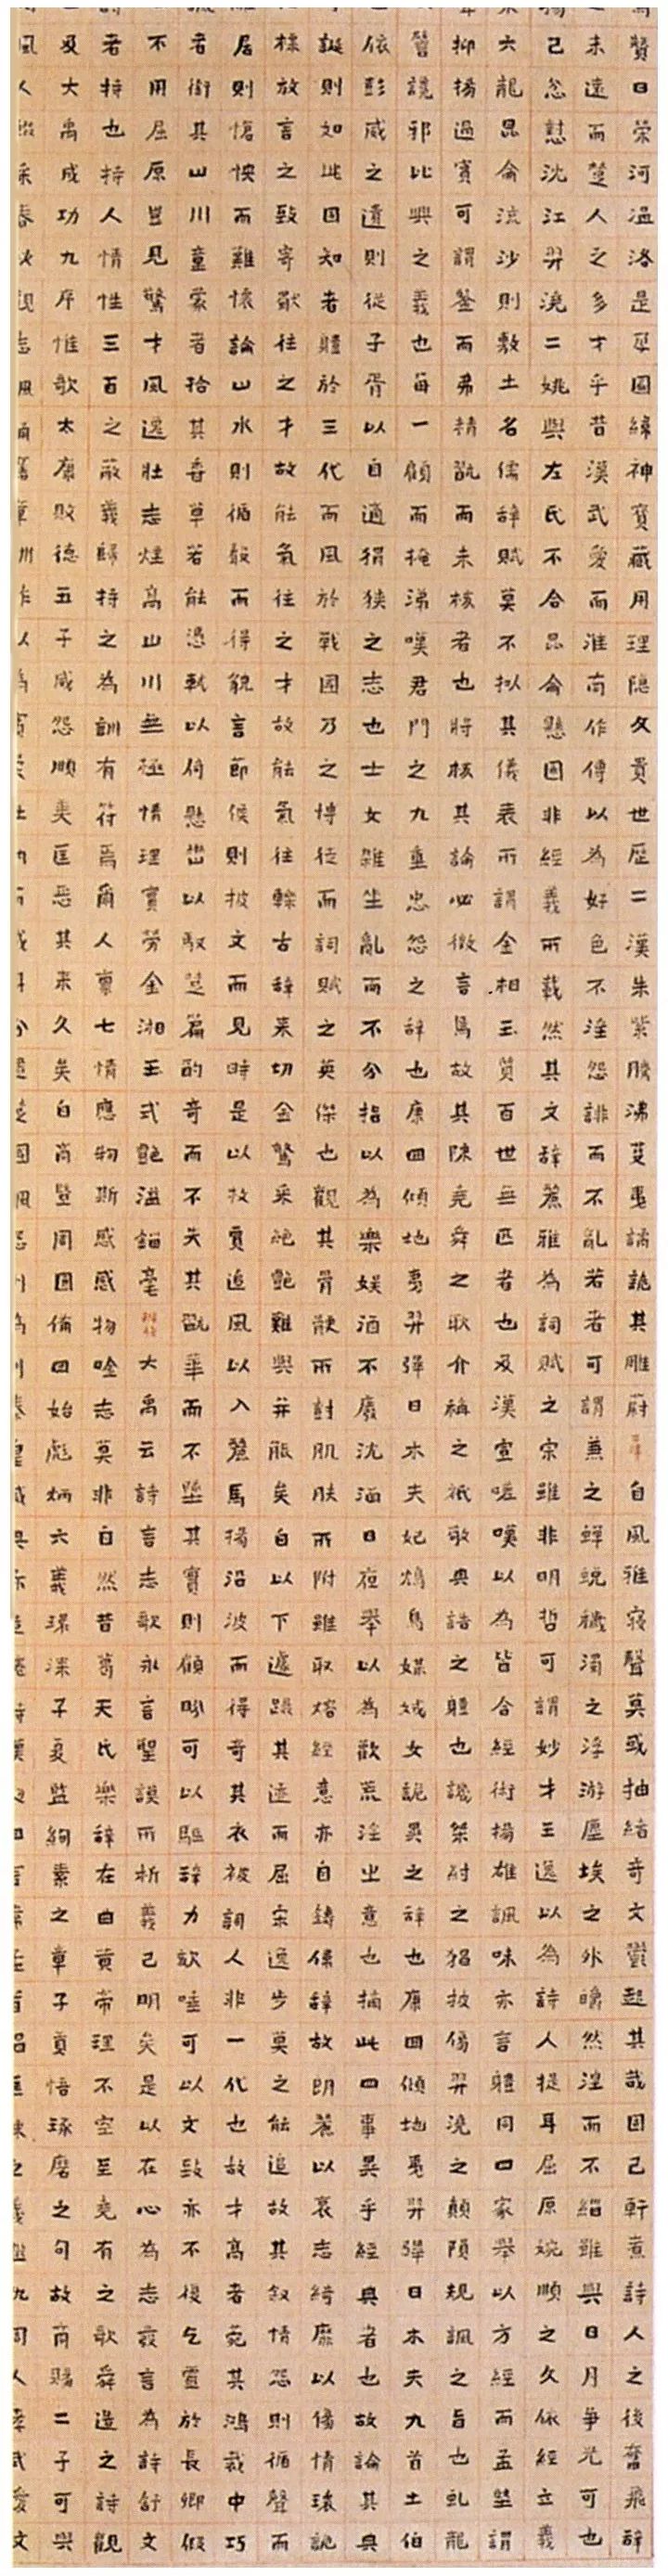 贊曰榮河溫洛是孕圖緯神寶藏用理隱久貴世歷二漢朱紫騰沸芟夷譎詭其雕蔚自風雅寢聲莫或抽緒奇文鬱起其哉固已軒翥詩人之後奮飛辞
未遠而楚人之多才乎昔漢武愛而淮南作傳以為好色不淫怨誹而不亂若者可謂兼之蟬蛻穢濁之浮游塵埃之外皭然涅而不緇雖與日月爭光可也
己忿懟沈江羿澆二姚與左氏不合昆侖懸圃非經義所載然其文辞麗雅為詞賦之宗雖非明哲可謂妙才王逸以為詩人提耳屈原婉順之久依經立義
六龍昆侖流沙則敷土名儒辞賦莫不拟其儀表所謂金相玉質百世無匹者也及漢宣嗟嘆以為皆合經術揚雄諷味亦言體同口家舉以方經而孟堅謂
抑揚過實可謂鉴而弗精翫而未核者也將核其論必徵言焉故其陳堯舜之耿介稱之祗敬典誥之體也譏桀紂之猖披傷羿澆之顛隕規諷之旨也虬龍
譬讒邪比興之義也每一顧而掩涕嘆君門之九重忠怨之辞也康回傾地夷羿彈日木夫妃鴆鳥媒娀女詭異之辞也康回傾地夷羿彈日木夫九首土伯
依彭咸之遺則從子胥以自適狷狹之志也士女雜坐亂而不分指以為樂娛酒不廢沈湎日夜舉以為歡荒淫出意也摘此四事異乎經典者也故論其典
誕則如此固知者體於三代而風於戰國乃之博徒而詞賦之英傑也觀其骨骸所討肌肤所附雖取熔經意亦自鑄偉辞故朗麗以哀志綺靡以傷情瑰詭
標放言之致寄獻往之才故能氣往之才故能氣往轢古辞来切金驚采絕艷難與并能矣自以下遽躡其迹而屈宋逸步莫之能追故其敘情怨則循聲而
居則愴怏而難懷論山水則循聲而得貌言節候則披文而見時是以枚賈追風以入麓馬揚沿波而得奇其衣被詞人非一代也故才高者菀其鴻裁中巧
者銜其山川童蒙者拾其香草若能憑軾以倚懸岀以馭楚篇酌奇而不失其翫華而不墜其實則顧盼可以驅辞力欬唾可以文致亦不復乞靈於長卿假
不用屈原豈見驚才風逸壯志煙高山川無極情理實勞金湘玉式艷溢錙毫大禹云詩言志歌永言聖謨所析義已明矣是以在心為志發言為詩舒文
者持也持人情性三百之蔽義歸持之為訓有符焉爾人禀七情應物斯感感物唫志莫非自然昔葛天氏樂辞在曲黄帝理不空至堯有之歌舜造之詩觀
及大禹成功九序惟歌太康敗德五子咸怨順美匡惡其来久矣自商暨周圓備四始彪炳六義環深子夏監絢素之章子貢悟琢磨之句故商賜二子可興